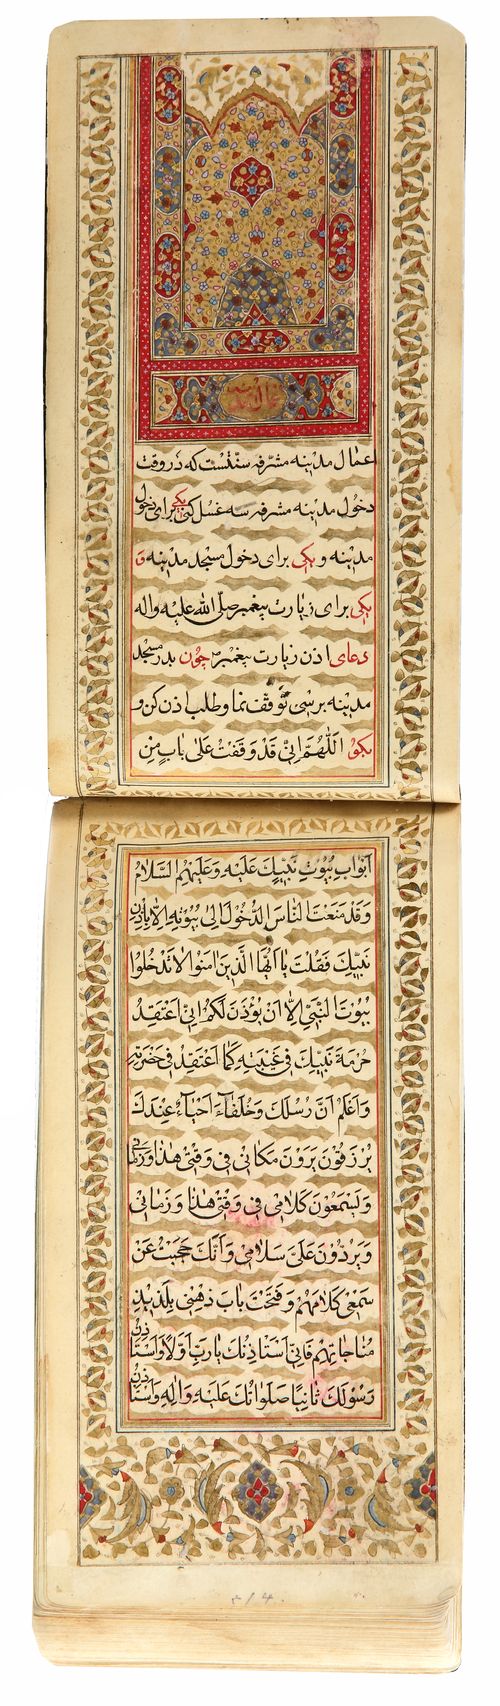 اعمال المدینه
عمال مدینه مشرفه سنتست که در وقت
دخول مدینه مشرفه سه غسل کنی یکی برای دخول
مدینه و یکی برای دخول مسجد مدینه و
یکی برای زیارت پیغمبر صلّی الله علیه واله
دعای اذن زیارت پیغمبر چون بدر مسجد
مدینه برسی توقف نما و طلب اذن کن و
بگو اَللّٰهُمَّ اِنّی قَدْ وَقَفْتُ عَلی بابٍ مِنْ
اَبْوابِ بُیُوتِ نَبِیِّكَ عَلَیْهِ وَعَلَیْهِمُ السَّلامُ
وَقَدْ مَنَعْتَ النّاسَ الدُّخُولَ اِلی بُیُوتِهِ اِلّا بِاِذْنِ
نَبِیِّكَ فَقُلْتَ یا اَیُّهَا الَّذینَ امَنُوا لا تَدْخُلُوا
بُیُوتَ النَّبِیِّ اِلّا اَنْ یُؤْذَنَ لَکُمْ اِنّی اَعْتَقِدُ
حُرْمَةَ نَبِیِّكَ فی غَیْبَتِهِ کَما اَعْتَقِدُ فی حَضْرَتِهِ
وَاَعْلَمُ اَنَّ رُسُلَكَ وَخُلَفآءَكَ اَحْیآءٌ عِنْدَكَ
یُرْزَقُونَ یَرَوْنَ مَکانی فی وَقْتی هٰذا وَزَمانی
وَیَسْمَعُونَ کَلامی فی وَقْتی هٰذا وَزَمانی
وَیَرُدُّونَ عَلَیَّ سَلامی وَاَنَّكَ حَجَبْتَ عَنْ
سَمْعی کَلامَهُمْ وَفَتَحْتَ بابَ فَهْمی بِلَذیذِ
مُناجاتِهِمْ فَاِنّی اَسْتَاْذِنُكَ یا رَبِّ اَوَّلًا وَاَسْتَاْذِنُ
رَسُولَكَ ثانِیًا صَلَواتُكَ عَلَیْهِ وَالِهِ وَاَسْتَاْذِنُ